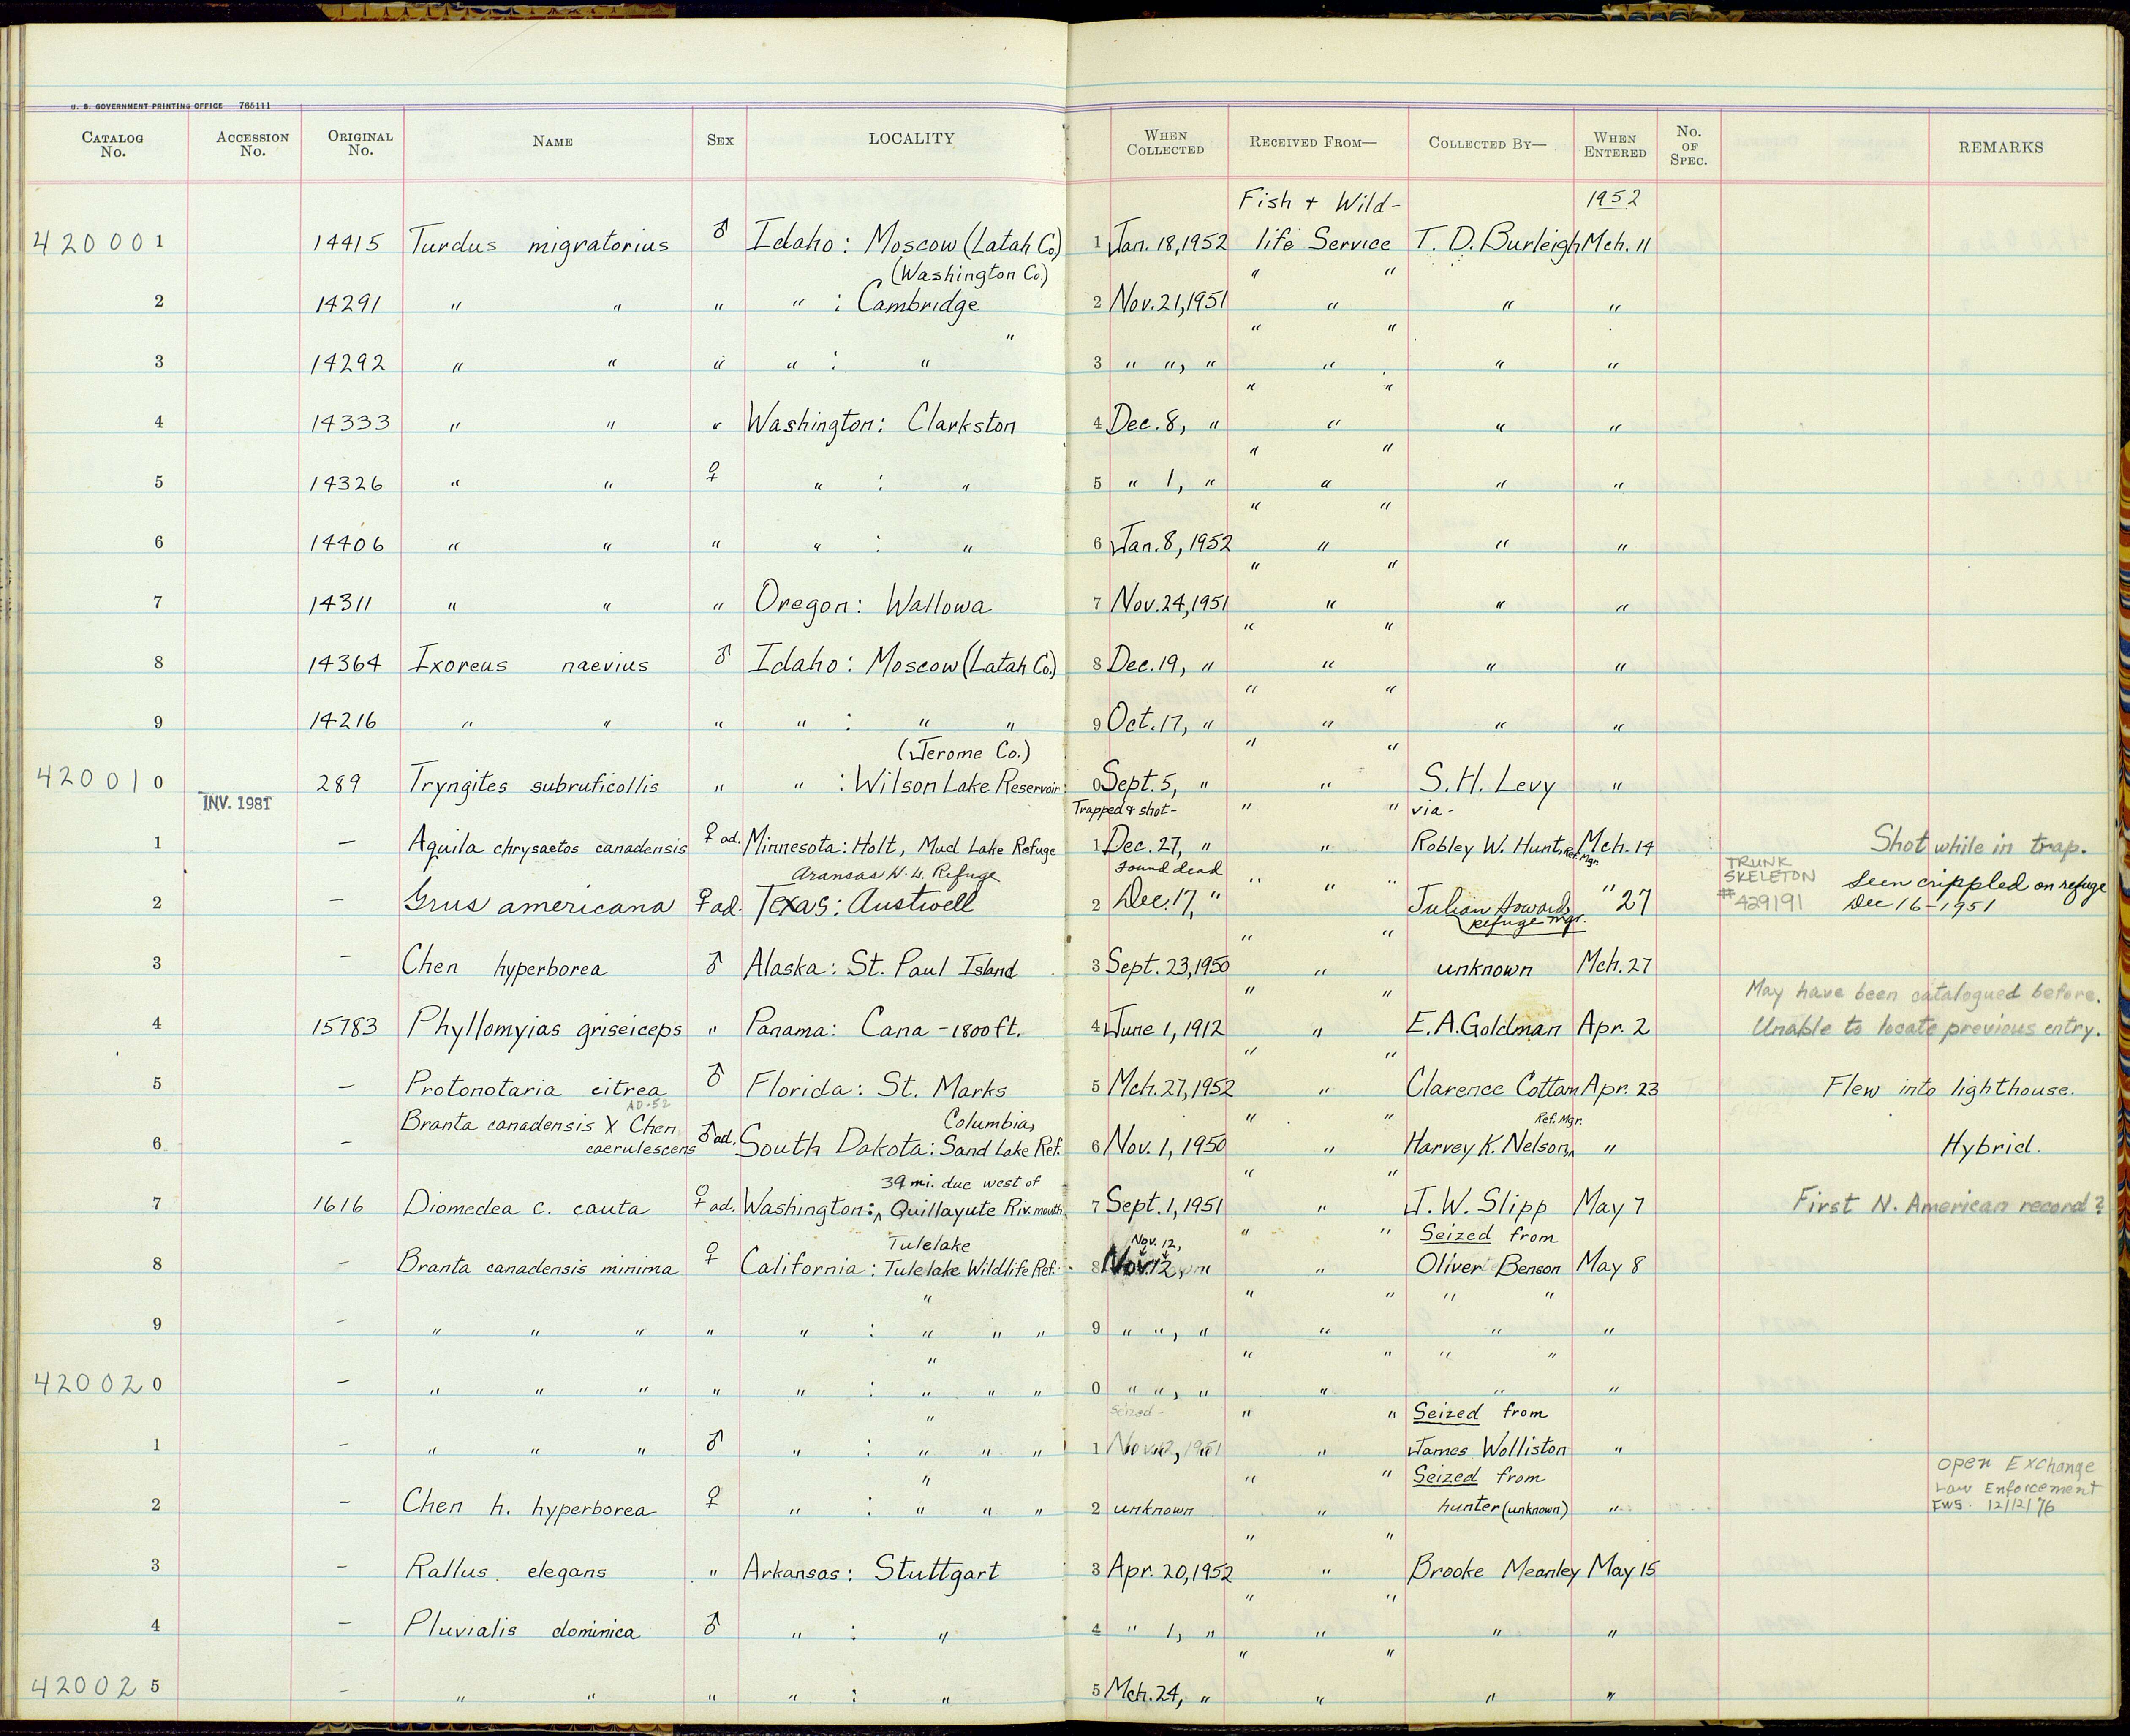 U. S. GOVERNMENT PRINTING OFFICE 765111
CATALOG No. ACCESSION No. ORIGINAL No. NAME SEX LOCALITY WHEN COLLECTED RECEIVED FROM— COLLECTED BY— WHEN ENTERED No. OF SPEC. REMARKS
Fish + Wild- 1952
420001 14415 Turdus migratorius ♂ Idaho: Moscow (Latah Co.) 1 Jan. 18, 1952 life Service T. D. Burleigh Mch. 11
(Washington Co.) " "
2 14291 " " " " : Cambridge 2 Nov. 21, 1951 " " "
" " "
3 14292 " " " " : " 3 " ", " " " "
" "
4 14333 " " " Washington: Clarkston 4 Dec. 8, " " " "
" "
5 14326 " " ♀ " : " 5 " 1, " " " "
" "
6 14406 " " " " : " 6 Jan. 8, 1952 " " "
" "
7 14311 " " " Oregon: Wallowa 7 Nov. 24, 1951 " " "
" "
8 14364 Ixoreus naevius ♂ Idaho: Moscow (Latah Co.) 8 Dec. 19, " " " "
" "
9 14216 " " " " : " " 9 Oct. 17, " " " "
(Jerome Co.) " "
420010 289 Tryngites subruficollis " " : Wilson Lake Reservoir 0 Sept. 5, " " S. H. Levy "
INV. 1981 Trapped & shot- " " via-
1 — Aquila chrysaetos canadensis ♀ ad. Minnesota: Holt, Mud Lake Refuge 1 Dec. 27, " " Robley W. Hunt, Ref. Mgr. Mch. 14 Shot while in trap.
Aransas W. L. Refuge found dead " " TRUNK SKELETON # 429191
2 — Grus americana ♀ ad. Texas: Austwell 2 Dec. 17, " " Julian Howard, Refuge Mgr. " 27 Seen crippled on refuge Dec 16-1951
" "
3 — Chen hyperborea ♂ Alaska: St. Paul Island 3 Sept. 23, 1950 " unknown Mch. 27
" " May have been catalogued before.
4 15783 Phyllomyias griseiceps " Panama: Cana - 1800 ft. 4 June 1, 1912 " E. A. Goldman Apr. 2 Unable to locate previous entry.
" "
5 — Protonotaria citrea ♂ Florida: St. Marks 5 Mch. 27, 1952 " Clarence Cottam Apr. 23 Flew into lighthouse.
AD.52
Branta canadensis X Chen Columbia, " " Ref. Mgr.
6 — caerulescens ♂ ad. South Dakota: Sand Lake Ref. 6 Nov. 1, 1950 " Harvey K. Nelson, " Hybrid.
39 mi. due west of " "
7 1616 Diomedea c. cauta ♀ ad. Washington: Quillayute Riv. mouth 7 Sept. 1, 1951 " J. W. Slipp May 7 First N. American record?
Tulelake Nov. 12, " " Seized from
8 — Branta canadensis minima ♀ California: Tulelake Wildlife Ref. 8 Nov. 12, " " Oliver Benson May 8
" " " " "
9 — " " " " " : " " " 9 " ", " " " "
" " " " "
420020 — " " " " " : " " " 0 " ", " " " "
" Seized- " " Seized from
1 — " " " ♂ " : " " " 1 Nov. 12, 1951 " James Wolliston "
" " " Seized from open Exchange
2 — Chen h. hyperborea ♀ " : " " " 2 unknown " hunter (unknown) " Law Enforcement
FWS. 12/12/76
" "
3 — Rallus elegans " Arkansas: Stuttgart 3 Apr. 20, 1952 " Brooke Meanley May 15
" "
4 — Pluvialis dominica ♂ " : " 4 " 1, " " " "
" "
420025 — " " " " : " 5 Mch. 24, " " " "